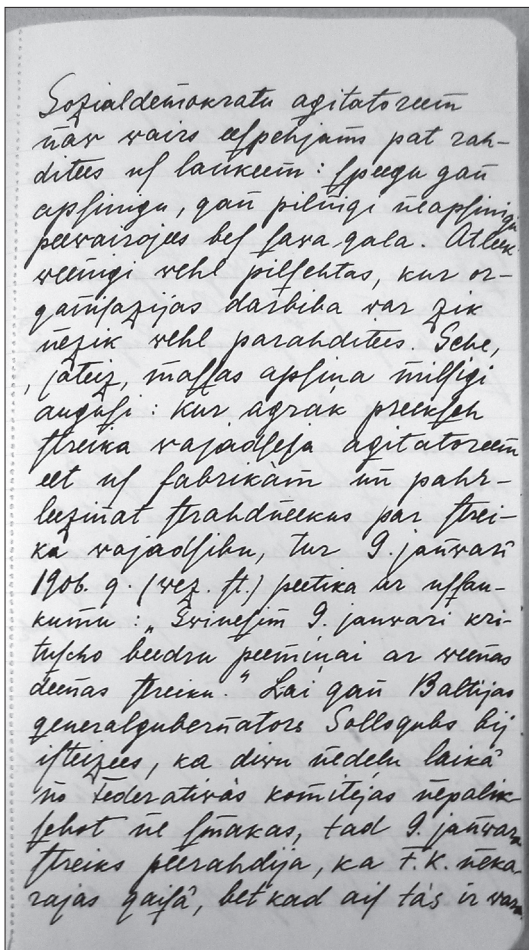 Sozialdemokratu agitatoreem
naw wairs eespehjams pat rah-
ditees uſ laukeem: ſpeegu gan
apſinigu, gan pilnigi neapſinigu
peewairojees beſ ſawa gala. Atleek
weenigi wehl pilſehtas, kur or-
ganiſazijas darbiba war zik
nezik wehl parahditees. Sche,
jateiz, maſſas apſina milſigi
auguſi: kur agrak preekſch
ſtreika wajadſeja agitatoreem
eet uſ fabrikàm un pahr-
leezinat ſtrahdneekus par ſtrei-
ka wajadſibu, tur 9. janwarî
1906. g. (wez. ſt.) peetika ar uſſau-
kumu: „Swineſim 9. janwarî kri-
tuſcho beedru peeminai ar weenas
deenas ſtreiku." Lai gan Baltijas
generalgubernators Sollogubs bij
iſteizees, ka diwu nedelu laikâ
no Federatiwàs komitejas nepalik-
ſchot ne ſmakas, tad 9. janwara
ſtreiks peerahdija, ka F. K. neka-
rajas gaiſâ, bet kad aiſ tàs ir